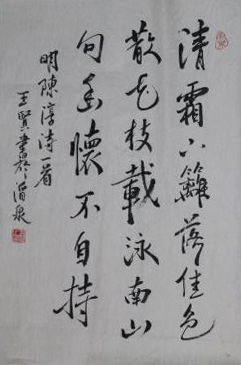 清霜下籬落佳色
散花枝載詠南山
句幽懷不自持
明陳淳詩一首
王賢書於酒泉